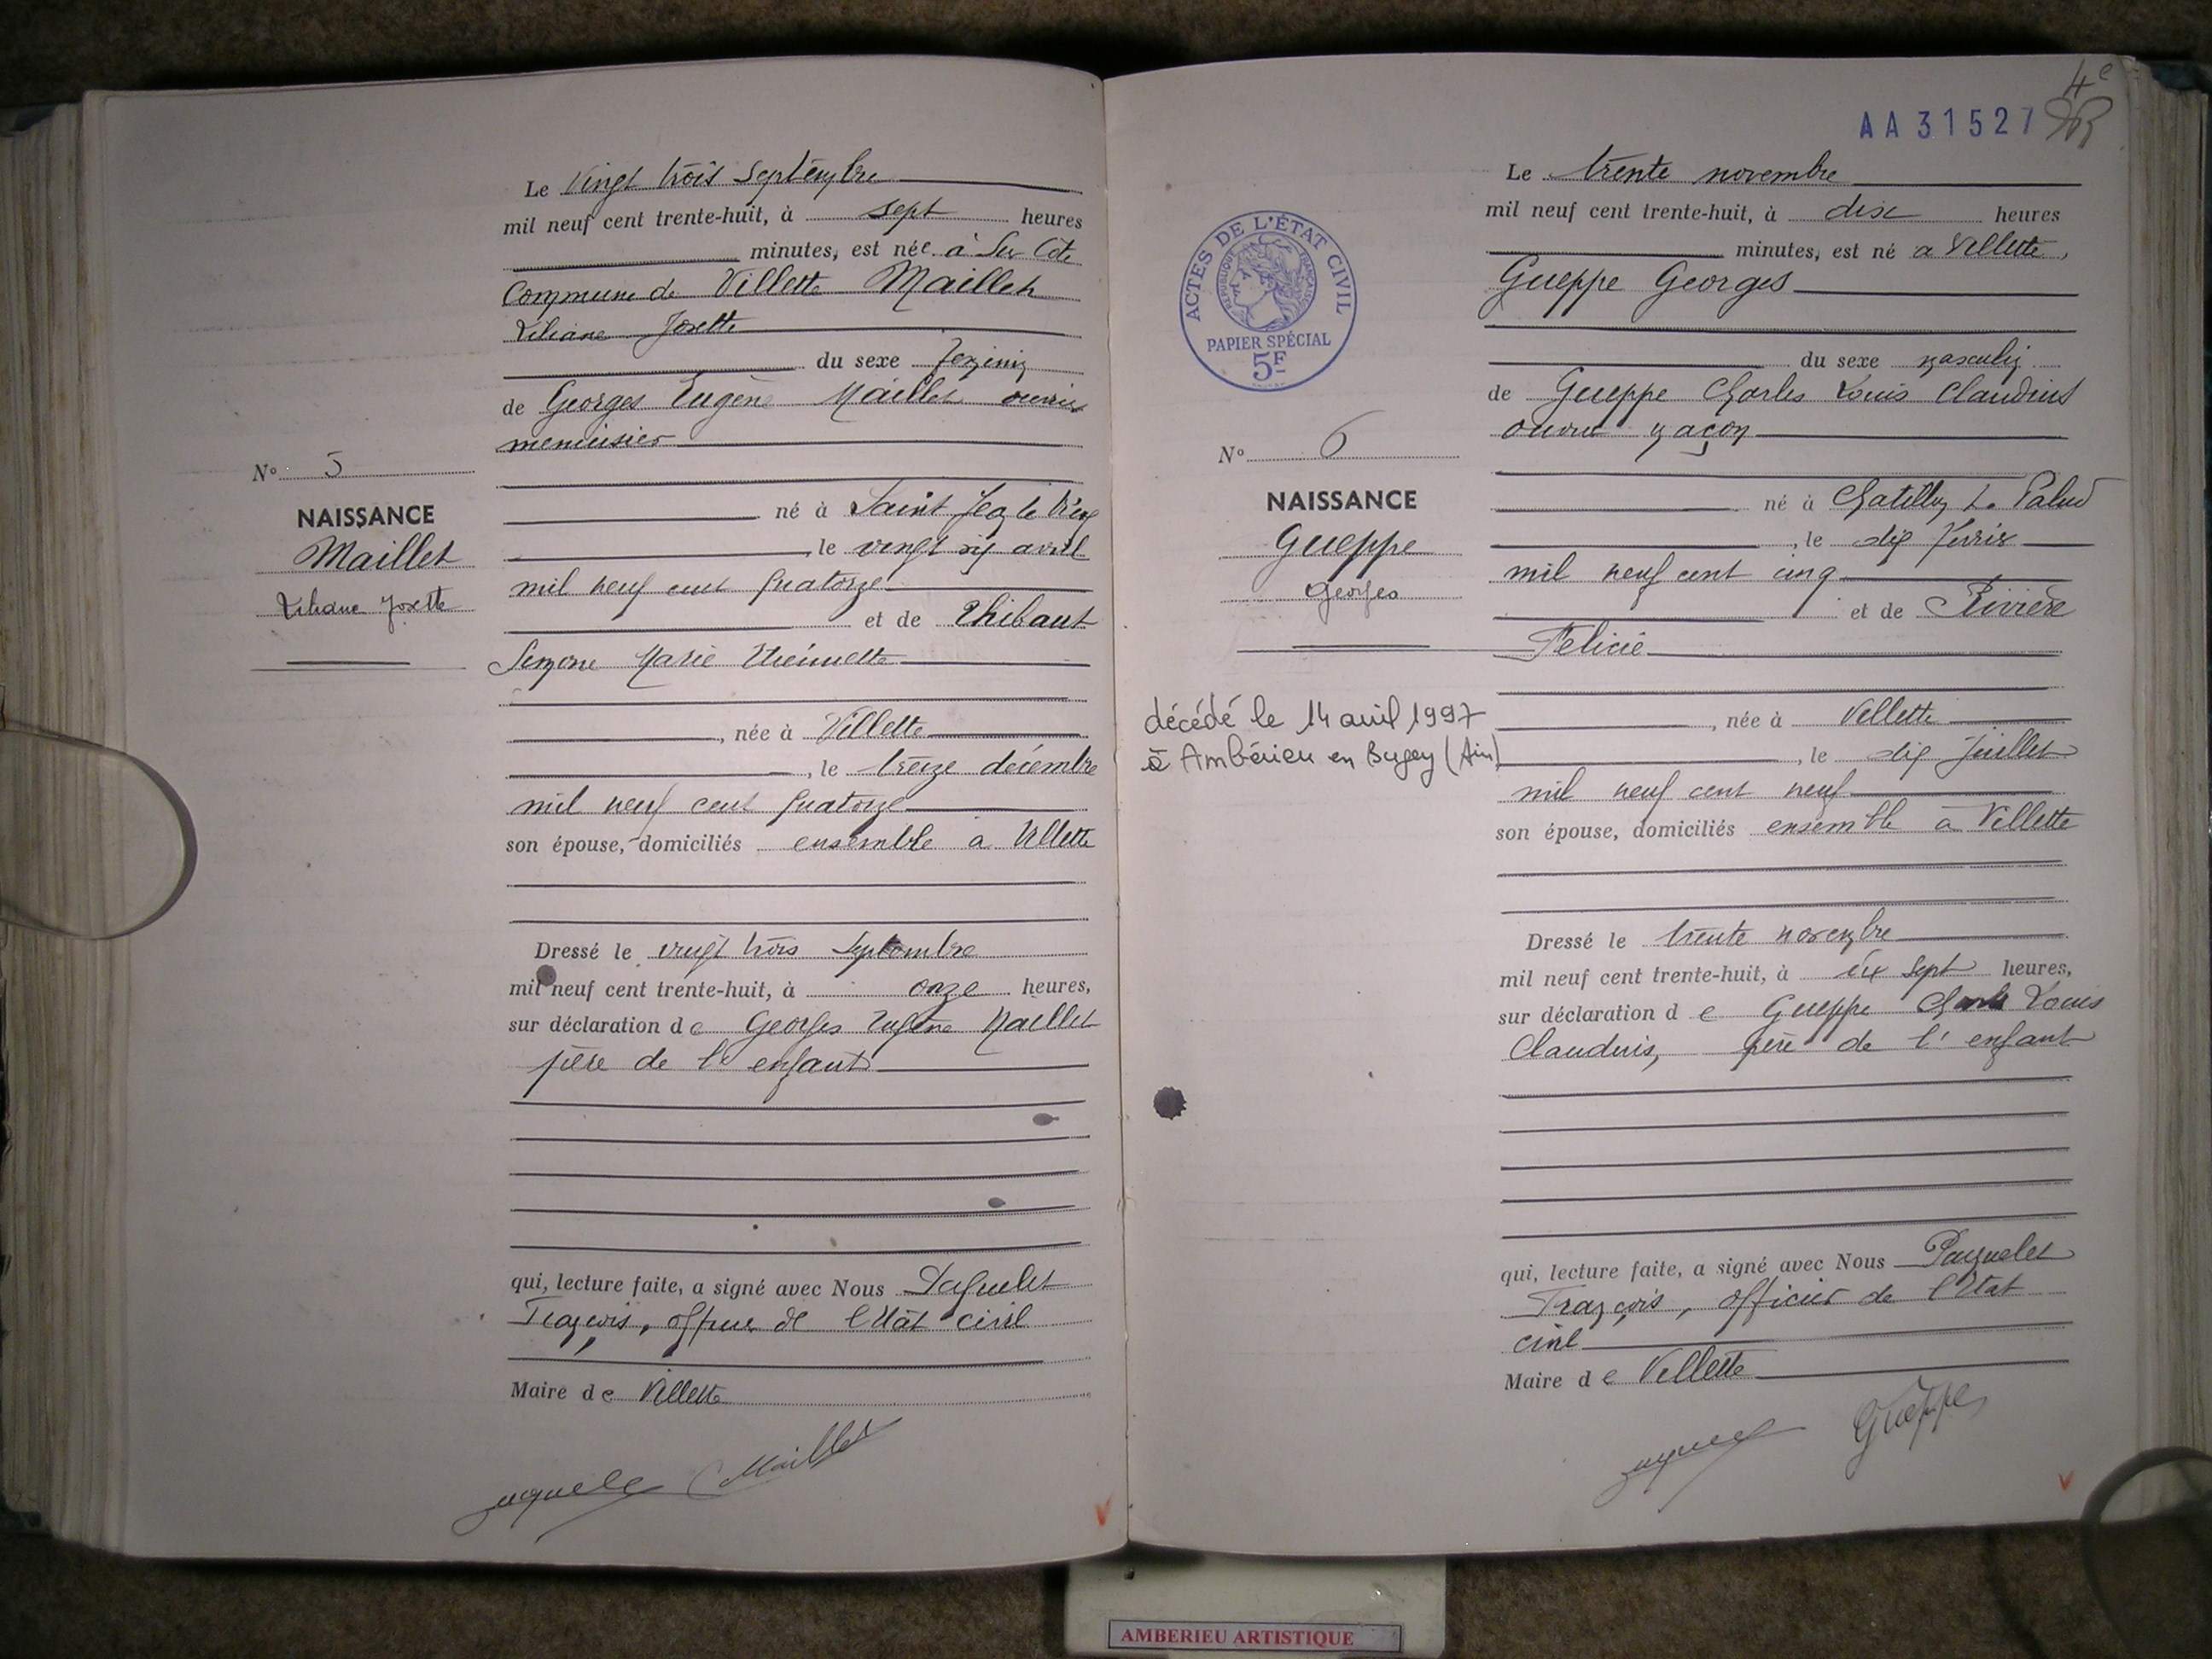 Le Vingt trois Septembre
mil neuf cent trente-huit, à sept heures
minutes, est née à Sur Côte
Commune de Villette Maillet
Liliane Josette
du sexe féminin
de Georges Eugène Maillet ouvrier
menuisier
N° 5
NAISSANCE
Maillet
Liliane Josette
né à Saint Jean le Vieux
, le vingt six avril
mil neuf cent quatorze
et de Thibaut
Simone Marie Etiennette
, née à Villette
, le treize décembre
mil neuf cent quatorze
son épouse, domiciliés ensemble à Villette
Dressé le vingt trois Septembre
mil neuf cent trente-huit, à onze heures,
sur déclaration de Georges Eugène Maillet
père de l'enfant
qui, lecture faite, a signé avec Nous Paquelet
François, officier de l'Etat civil
Maire de Villette
Maillet
4e
AA31527
Le trente novembre
mil neuf cent trente-huit, à dix heures
minutes, est né à Villette,
Gueppe Georges
du sexe masculin
de Gueppe Charles Louis Claudius
ouvrier maçon
ACTES DE L'ÉTAT CIVIL
RÉPUBLIQUE FRANÇAISE
PAPIER SPÉCIAL
5F
N° 6
NAISSANCE
Gueppe
Georges
né à Chatillon L. Palud
, le dix février
mil neuf cent cinq
et de Rivière
Félicie
décédé le 14 avril 1997
à Ambérieu en Bugey (Ain)
, née à Villette
, le dix juillet
mil neuf cent neuf
son épouse, domiciliés ensemble à Villette
Dressé le trente novembre
mil neuf cent trente-huit, à dix sept heures,
sur déclaration de Gueppe Charles Louis
Claudius, père de l'enfant
qui, lecture faite, a signé avec Nous Paquelet
François, officier de l'Etat
civil
Maire de Villette
Gueppe
AMBERIEU ARTISTIQUE